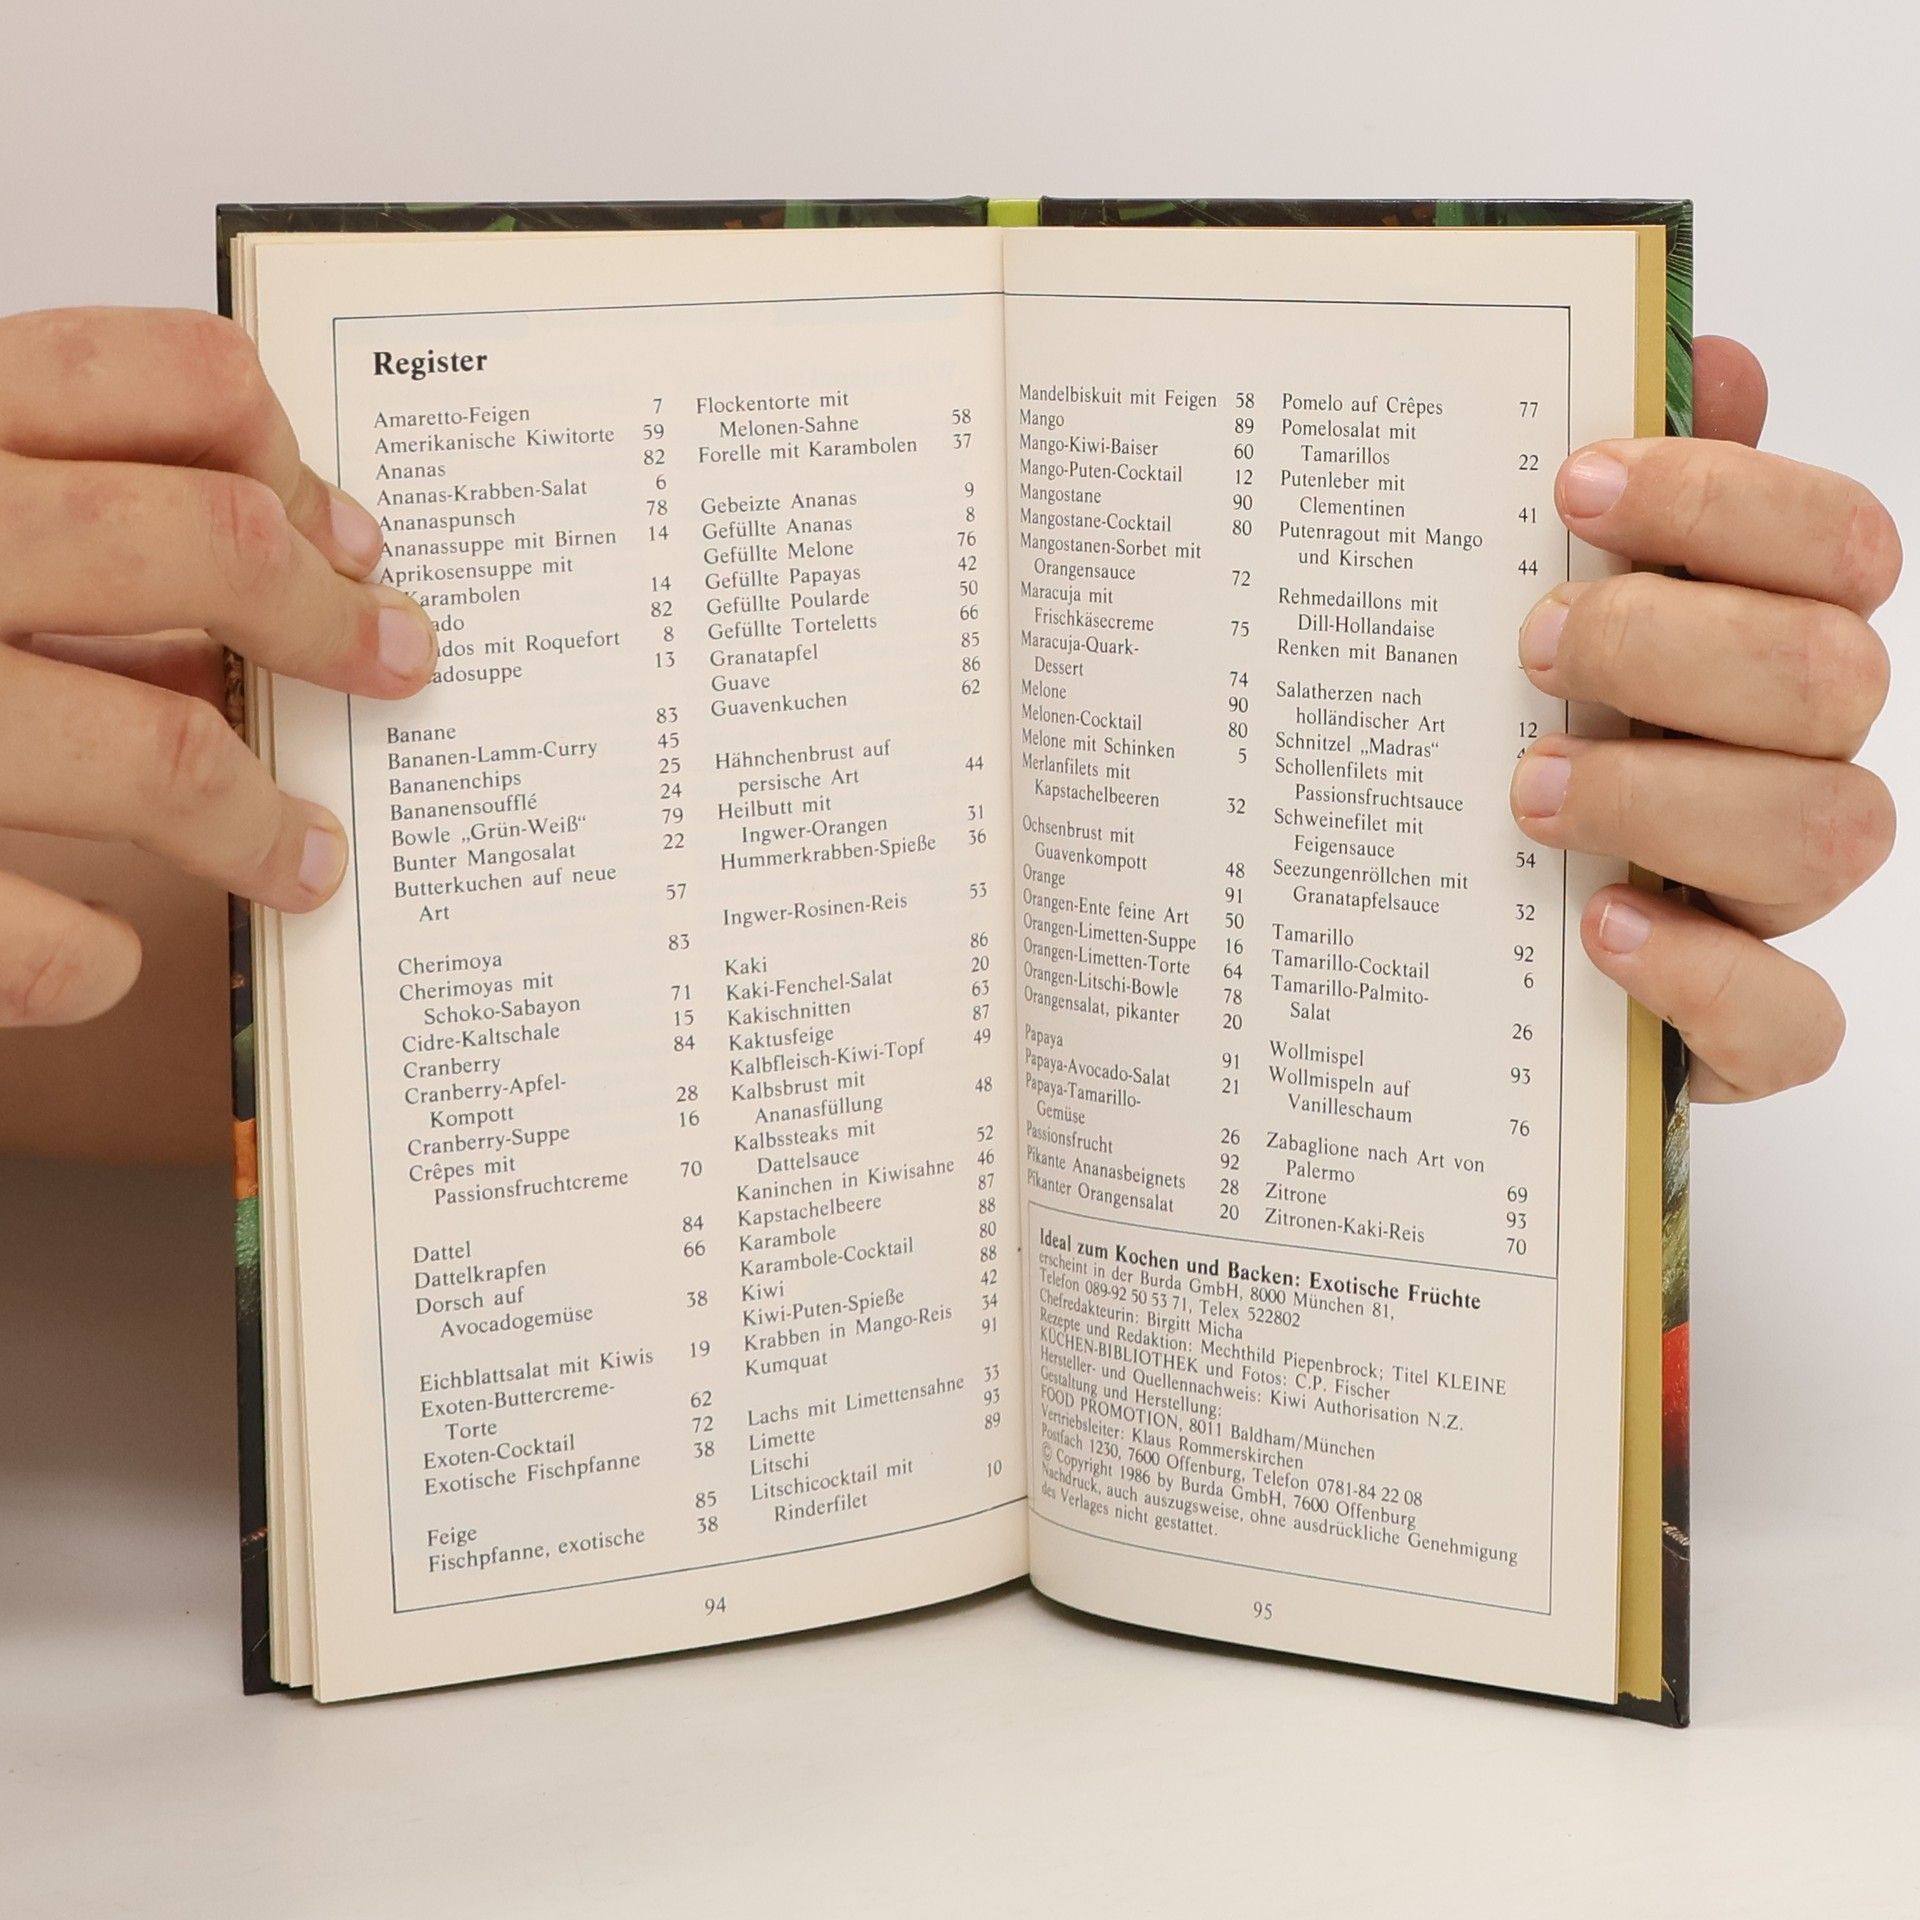 Register
Amaretto-Feigen 7
Amerikanische Kiwitorte 59
Ananas 82
Ananas-Krabben-Salat 6
Ananaspunsch 78
Ananassuppe mit Birnen 14
Aprikosensuppe mit
Karambolen 14
82
mit Roquefort 8
13
Banane 83
Bananen-Lamm-Curry 45
Bananenchips 25
Bananensoufflé 24
Bowle „Grün-Weiß“ 79
Bunter Mangosalat 22
Butterkuchen auf neue
Art 57
Cherimoya 83
Cherimoyas mit
Schoko-Sabayon 71
Cidre-Kaltschale 15
Cranberry 84
Cranberry-Apfel-
Kompott 28
Cranberry-Suppe 16
Crêpes mit
Passionsfruchtcreme 70
Dattel 84
Dattelkrapfen 66
Dorsch auf
Avocadogemüse 38
Eichblattsalat mit Kiwis 19
Exoten-Buttercreme-
Torte 62
Exoten-Cocktail 72
Exotische Fischpfanne 38
Feige 85
Fischpfanne, exotische 38
Flockentorte mit
Melonen-Sahne 58
Forelle mit Karambolen 37
Gebeizte Ananas 9
Gefüllte Ananas 8
Gefüllte Melone 76
Gefüllte Papayas 42
Gefüllte Poularde 50
Gefüllte Torteletts 66
Granatapfel 85
Guave 86
Guavenkuchen 62
Hähnchenbrust auf
persische Art 44
Heilbutt mit
Ingwer-Orangen 31
Hummerkrabben-Spieße 36
Ingwer-Rosinen-Reis 53
Kaki 86
Kaki-Fenchel-Salat 20
Kakischnitten 63
Kaktusfeige 87
Kalbfleisch-Kiwi-Topf 49
Kalbsbrust mit
Ananasfüllung 48
Kalbssteaks mit
Dattelsauce 52
Kaninchen in Kiwisahne 46
Kapstachelbeere 87
Karambole 88
Karambole-Cocktail 80
Kiwi 88
Kiwi-Puten-Spieße 42
Krabben in Mango-Reis 34
Kumquat 91
Lachs mit Limettensahne 33
Limette 93
Litschi 89
Litschicocktail mit
Rinderfilet 10
94
Mandelbiskuit mit Feigen 58
Mango 89
Mango-Kiwi-Baiser 60
Mango-Puten-Cocktail 12
Mangostane 90
Mangostane-Cocktail 80
Mangostanen-Sorbet mit
Orangensauce 72
Maracuja mit
Frischkäsecreme 75
Maracuja-Quark-
Dessert 74
Melone 90
Melonen-Cocktail 80
Melone mit Schinken 5
Merlanfilets mit
Kapstachelbeeren 32
Ochsenbrust mit
Guavenkompott 48
Orange 91
Orangen-Ente feine Art 50
Orangen-Limetten-Suppe 16
Orangen-Limetten-Torte 64
Orangen-Litschi-Bowle 78
Orangensalat, pikanter 20
Papaya 91
Papaya-Avocado-Salat 21
Papaya-Tamarillo-
Gemüse 26
Passionsfrucht 92
Pikante Ananasbeignets 28
Pikanter Orangensalat 20
Pomelo auf Crêpes 77
Pomelosalat mit
Tamarillos 22
Putenleber mit
Clementinen 41
Putenragout mit Mango
und Kirschen 44
Rehmedaillons mit
Dill-Hollandaise
Renken mit Bananen
Salatherzen nach
holländischer Art 12
Schnitzel „Madras“
Schollenfilets mit
Passionsfruchtsauce
Schweinefilet mit
Feigensauce 54
Seezungenröllchen mit
Granatapfelsauce 32
Tamarillo 92
Tamarillo-Cocktail 6
Tamarillo-Palmito-
Salat 26
Wollmispel 93
Wollmispeln auf
Vanilleschaum 76
Zabaglione nach Art von
Palermo 69
Zitrone 93
Zitronen-Kaki-Reis 70
Ideal zum Kochen und Backen: Exotische Früchte
erscheint in der Burda GmbH, 8000 München 81,
Telefon 089-92 50 53 71, Telex 522802
Chefredakteurin: Birgitt Micha
Rezepte und Redaktion: Mechthild Piepenbrock; Titel KLEINE
KÜCHEN-BIBLIOTHEK und Fotos: C.P. Fischer
Hersteller- und Quellennachweis: Kiwi Authorisation N.Z.
Gestaltung und Herstellung:
FOOD PROMOTION, 8011 Baldham/München
Vertriebsleiter: Klaus Rommerskirchen
Postfach 1230, 7600 Offenburg, Telefon 0781-84 22 08
© Copyright 1986 by Burda GmbH, 7600 Offenburg
Nachdruck, auch auszugsweise, ohne ausdrückliche Genehmigung
des Verlages nicht gestattet.
95